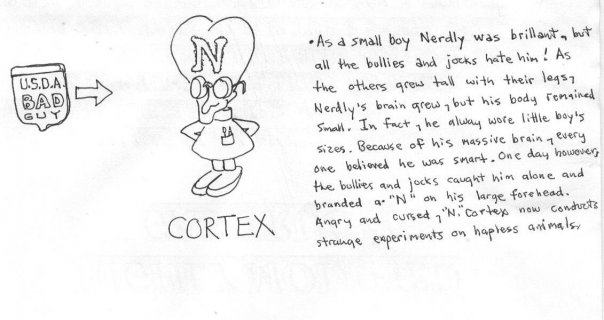 U.S.D.A.
BAD
GUY
N
CORTEX
• As a small boy Nerdly was brillant, but
all the bullies and jocks hate him! As
the others grew tall with their legs,
Nerdly's brain grew, but his body remained
small. In fact, he alway wore little boy's
sizes. Because of his massive brain, every
one believed he was smart. One day however,
the bullies and jocks caught him alone and
branded a "N" on his large forehead.
Angry and cursed, "N." Cortex now conducts
strange experiments on hapless animals.